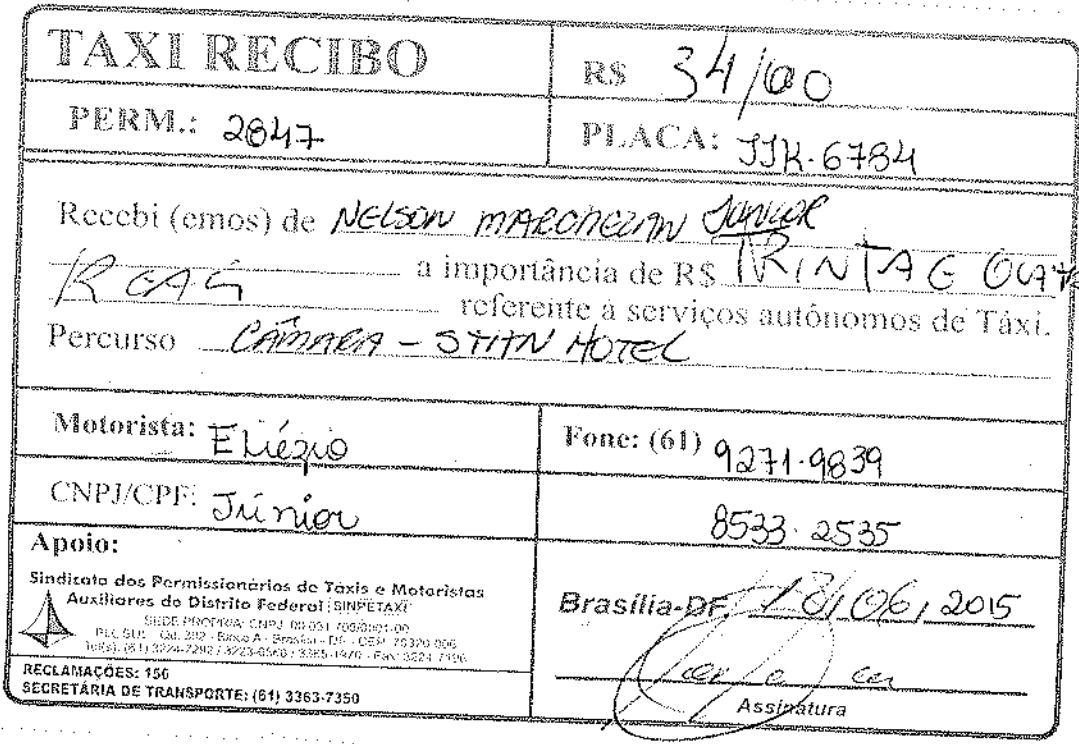 TAXI RECIBO
R$ 34/00
PERM.: 2847
PLACA: JJK-6784
Recebi (emos) de NELSON MARCHEZAN JUNIOR
a importância de R$ TRINTA E QUATR
REAIS
referente à serviços autônomos de Táxi.
Percurso CÂMARA - STHN HOTEL
Motorista: Eliézio
Fone: (61) 9271-9839
CNPJ/CPF: Júnior
8533-2535
Apoio:
Sindicato dos Permissionários de Táxis e Motoristas
Auxiliares do Distrito Federal SINPETAXI
Brasília-DF, 18/06/2015
RECLAMAÇÕES: 156
SECRETÁRIA DE TRANSPORTE: (61) 3363-7350
Assinatura